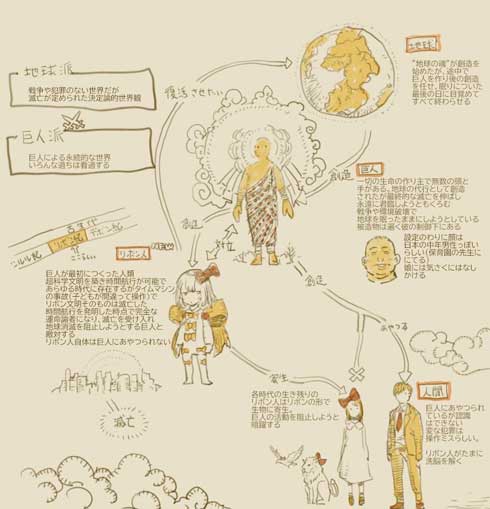 地球派
戦争や犯罪のない世界だが
滅亡が定められた決定論的世界観
巨人派
巨人による永続的な世界
いろんな過ちは看過する
復活させたい
地球
"地球の魂"が創造を
始めたが、途中で
巨人を作り後の創造
を任せ、眠りについた
最後の日に目覚めて
すべて終わらせる
創造
巨人
一切の生命の作り主で無数の頭と
手がある。地球の代行として創造
されたが最終的な滅亡を伸ばし
永遠に君臨しようともくろむ
戦争や環境破壊で
地球を眠ったままにしようとしている
被造物は遍く彼の制御下にある
設定のわりに顔は
日本の中年男性っぽい
らしい(保育園の先生に
にてる)
娘には気さくにはなし
かける
創造
対立
創造
古生代
シルル紀
リボン紀
デボン紀
リボン人
巨人が最初につくった人類
超科学文明を築き時間航行が可能で
あらゆる時代に存在するがタイムマシン
の事故(子どもが間違って操作)で
リボン文明そのものは滅亡した
時間航行を発明した時点で完全な
運命論者になり、滅亡を受け入れ
地球消滅を阻止しようとする巨人と
敵対する
リボン人自体は巨人にあやつられない
滅亡
寄生
各時代の生き残りの
リボン人はリボンの形で
生物に寄生。
巨人の活動を阻止しようと
暗躍する
あやつる
人間
巨人にあやつられ
ているが認識
はできない
変な犯罪は
操作ミスらしい。
リボン人がたまに
洗脳を解く